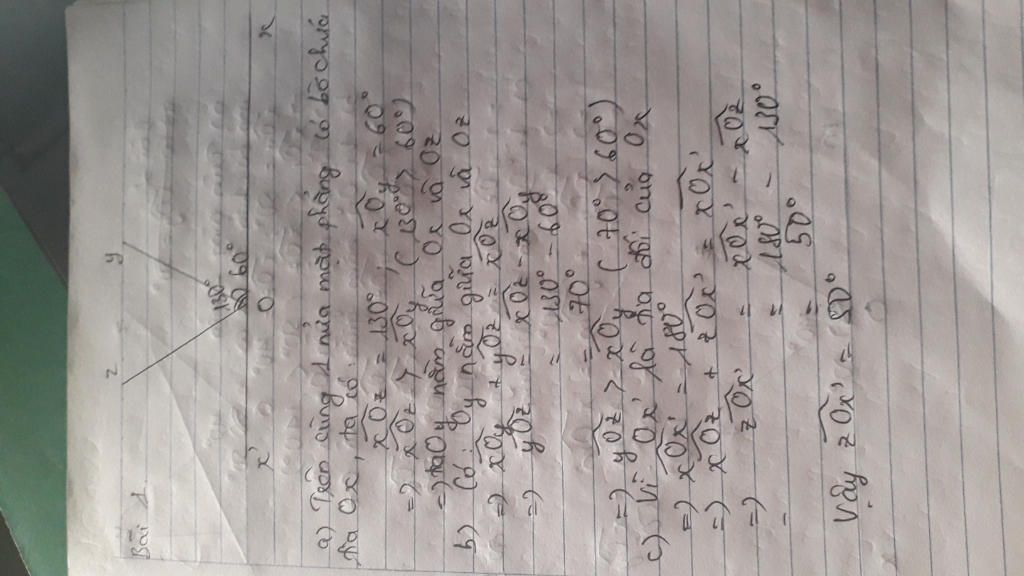 Bài 1
z y
130°
50 60°
x' O x
a) Trên cùng 1 nửa mặt phẳng có bờ chứa
tia Ox, ta có:
xOz = 130°; xOy = 60°
=> xOz > xOy (130° > 60°)
=> Oy nằm giữa Ox và Oz
b) Có: Oy nằm giữa Ox và Oz
=> xOy + yOz = xOz
=> yOz = xOz - xOy
= 130° - 60°
= 70°
=> yOz > xOy (70° > 60°)
c) Vì Ox' là tia đối của Ox
=> xOx' = 180°
=> xOz + zOx' = xOx'
=> zOx' = xOx' - xOz
= 180° - 130°
= 50°
Vậy zOx' = 50°